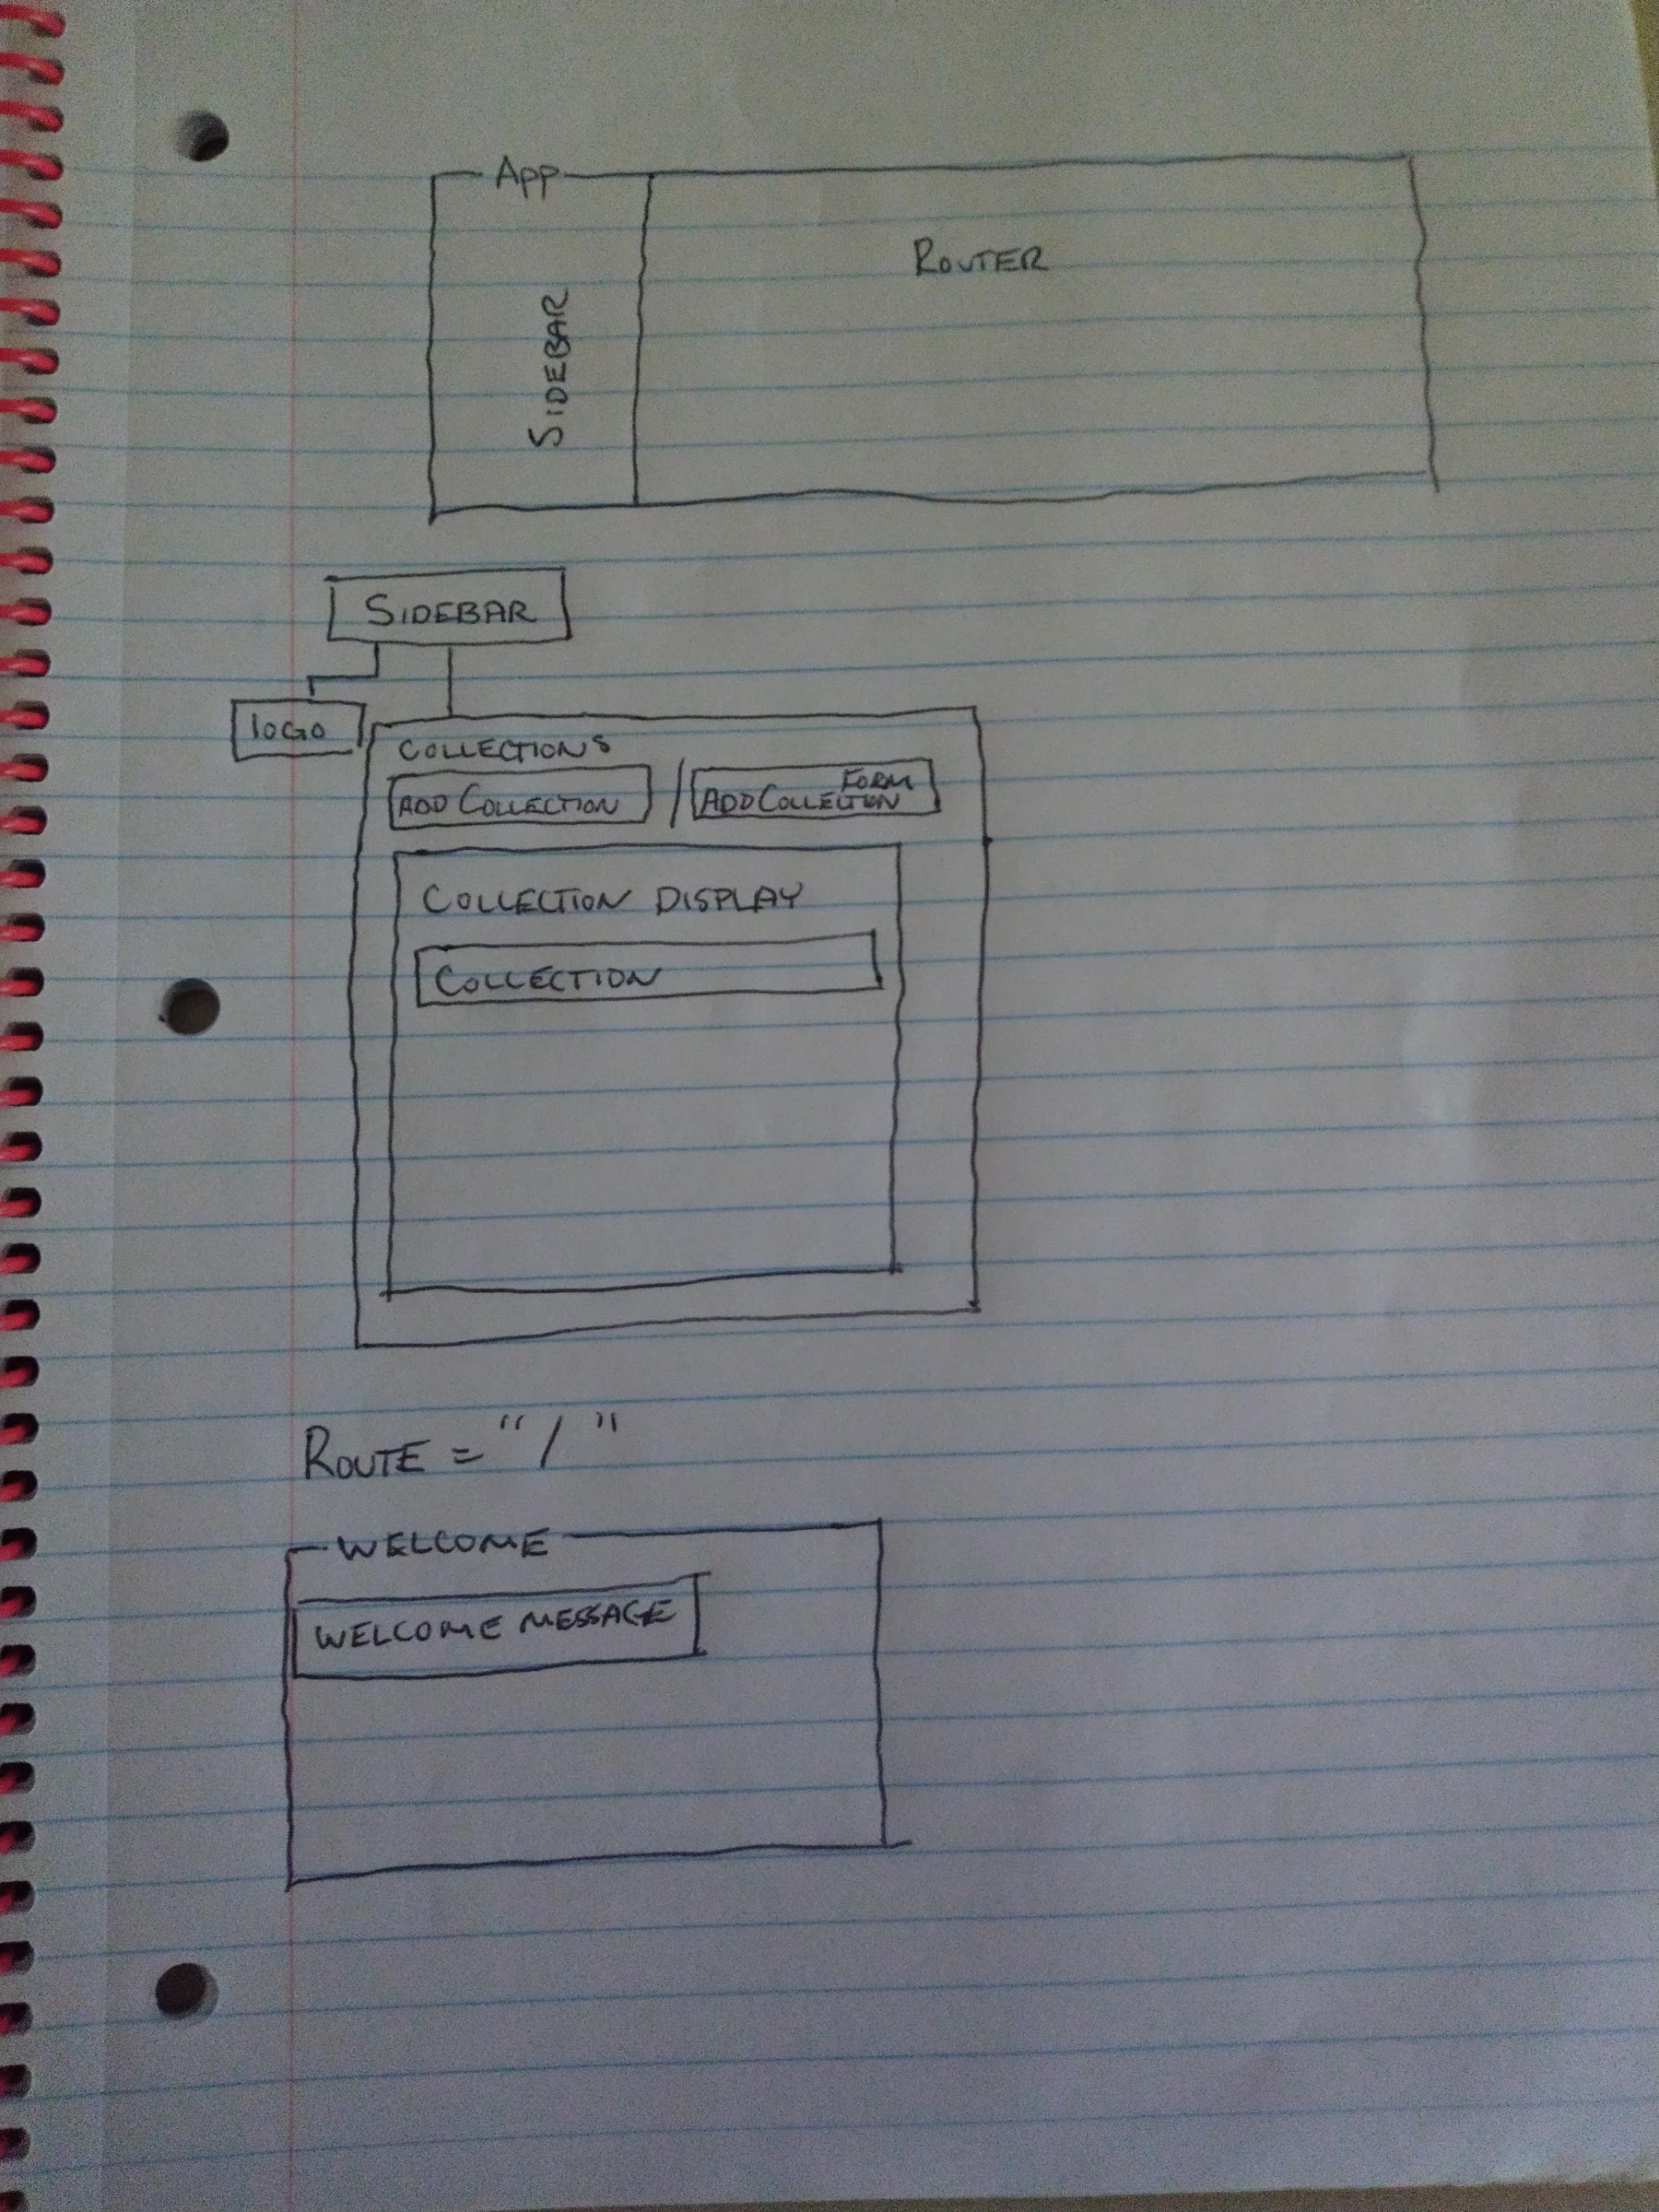 App
ROUTER
SIDEBAR
SIDEBAR
LOGO
COLLECTIONS
ADD COLLECTION / ADD COLLECTION FORM
COLLECTION DISPLAY
COLLECTION
ROUTE = "/"
WELCOME
WELCOME MESSAGE